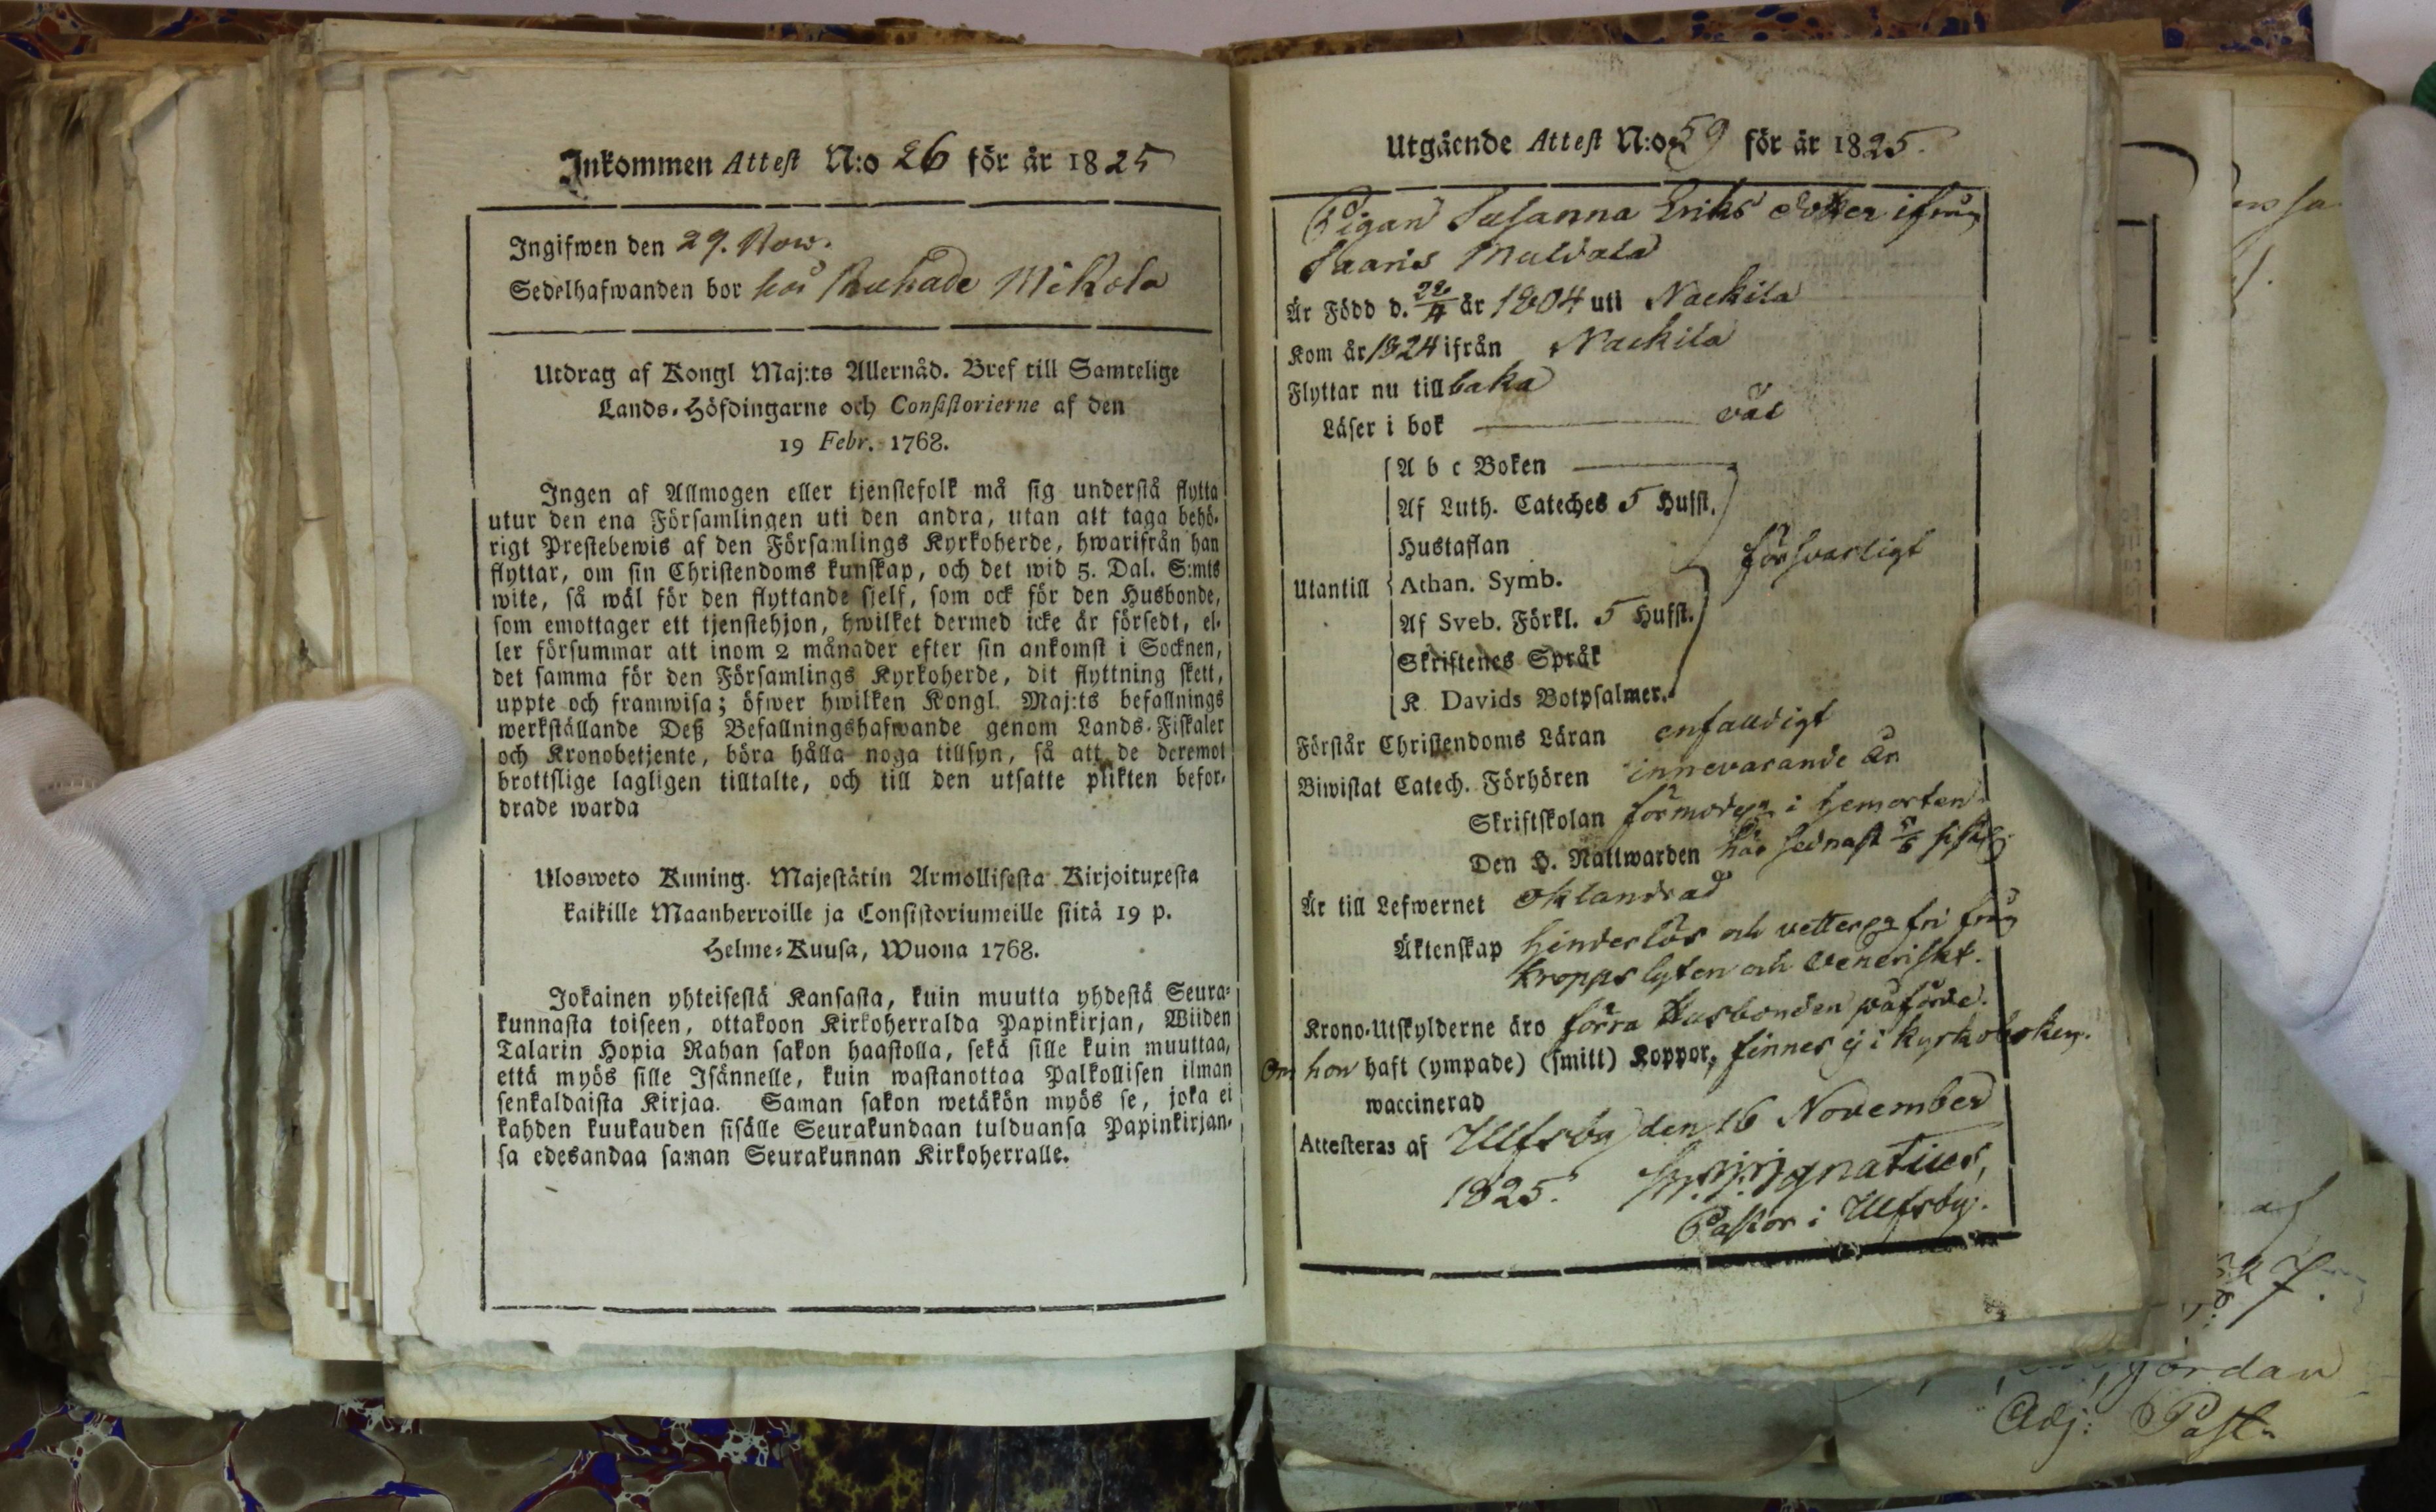 Inkommen Attest N:o 26 för år 1825
Ingifwen den 29. Nov.
Sedelhafwanden bor hos Mikola
Utdrag af Kongl Maj:ts Allernåd. Bref till Samtelige
Lands-Höfdingarne och Consistorierne af den
19 Febr. 1768.
Ingen af Allmogen eller tjenstefolk må sig understå flytta
utur den ena Församlingen uti den andra, utan att taga behö-
rigt Prestebewis af den Församlings Kyrkoherde, hwarifrån han
flyttar, om sin Christendoms kunskap, och det wid 5. Dal. S:mts
wite, så wäl för den flyttande sjelf, som ock för den Husbonde,
som emottager ett tjenstehjon, hwilket dermed icke är försedt, el-
ler försummar att inom 2 månader efter sin ankomst i Socknen,
det samma för den Församlings Kyrkoherde, dit flyttning skett,
uppte och framwisa; öfwer hwilken Kongl. Maj:ts befallnings
werkställande Deß Befallningshafwande genom Lands-Fiskaler
och Kronobetjente, böra hålla noga tillsyn, så att de deremot
brottslige lagligen tilltalte, och till den utsatte plikten befor-
drade warda
Ulosweto Kuning. Majestätin Armollisesta Kirjoituxesta
kaikille Maanherroille ja Consistoriumeille siitä 19 p.
Helme-Kuusa, Wuona 1768.
Jokainen yhteisestä Kansasta, kuin muutta yhdestä Seura-
kunnasta toiseen, ottakoon Kirkoherralda Papinkirjan, Wiiden
Talarin Hopia Rahan sakon haastolla, sekä sille kuin muuttaa,
että myös sille Isännelle, kuin wastanottaa Palkollisen ilman
senkaldaista Kirjaa. Saman sakon wetäkön myös se, joka ei
kahden kuukauden sisälle Seurakundaan tulduansa Papinkirjan-
sa edesandaa saman Seurakunnan Kirkoherralle.
Utgående Attest N:o 59 för år 1825.
Pigan Susanna Eriks dotter ifrån
Haaris
Är Född d. 22/4 år 1804 uti Nackila
Kom år 1824 ifrån Nackila
Flyttar nu tillbaka
Läser i bok väl
A b c Boken
Af Luth. Cateches 5 Hufst.
Hustaflan
Utantill Athan. Symb. försvarligt
Af Sveb. Förkl. 5 Hufst.
Skriftenes Språk
K. Davids Botpsalmer.
Förstår Christendoms Läran enfaldigt
Biwistat Catech. Förhören innevarande år
Skriftskolan förmodeln i hemorten
Den H. Nattwarden här sednast
Är till Lefwernet oklandrad
Äktenskap hinderlös och vetterln fri från
kroppslyten och Veneriskt.
Krono-Utskylderne äro förra Husbonden påförde.
Om hon haft (ympade) (smitt) Koppor, finnes ej i kyrkoboken.
waccinerad
Attesteras af Ulfsby den 16 November
1825. Ignatius,
Pastor i Ulfsby.
Adj: Past.